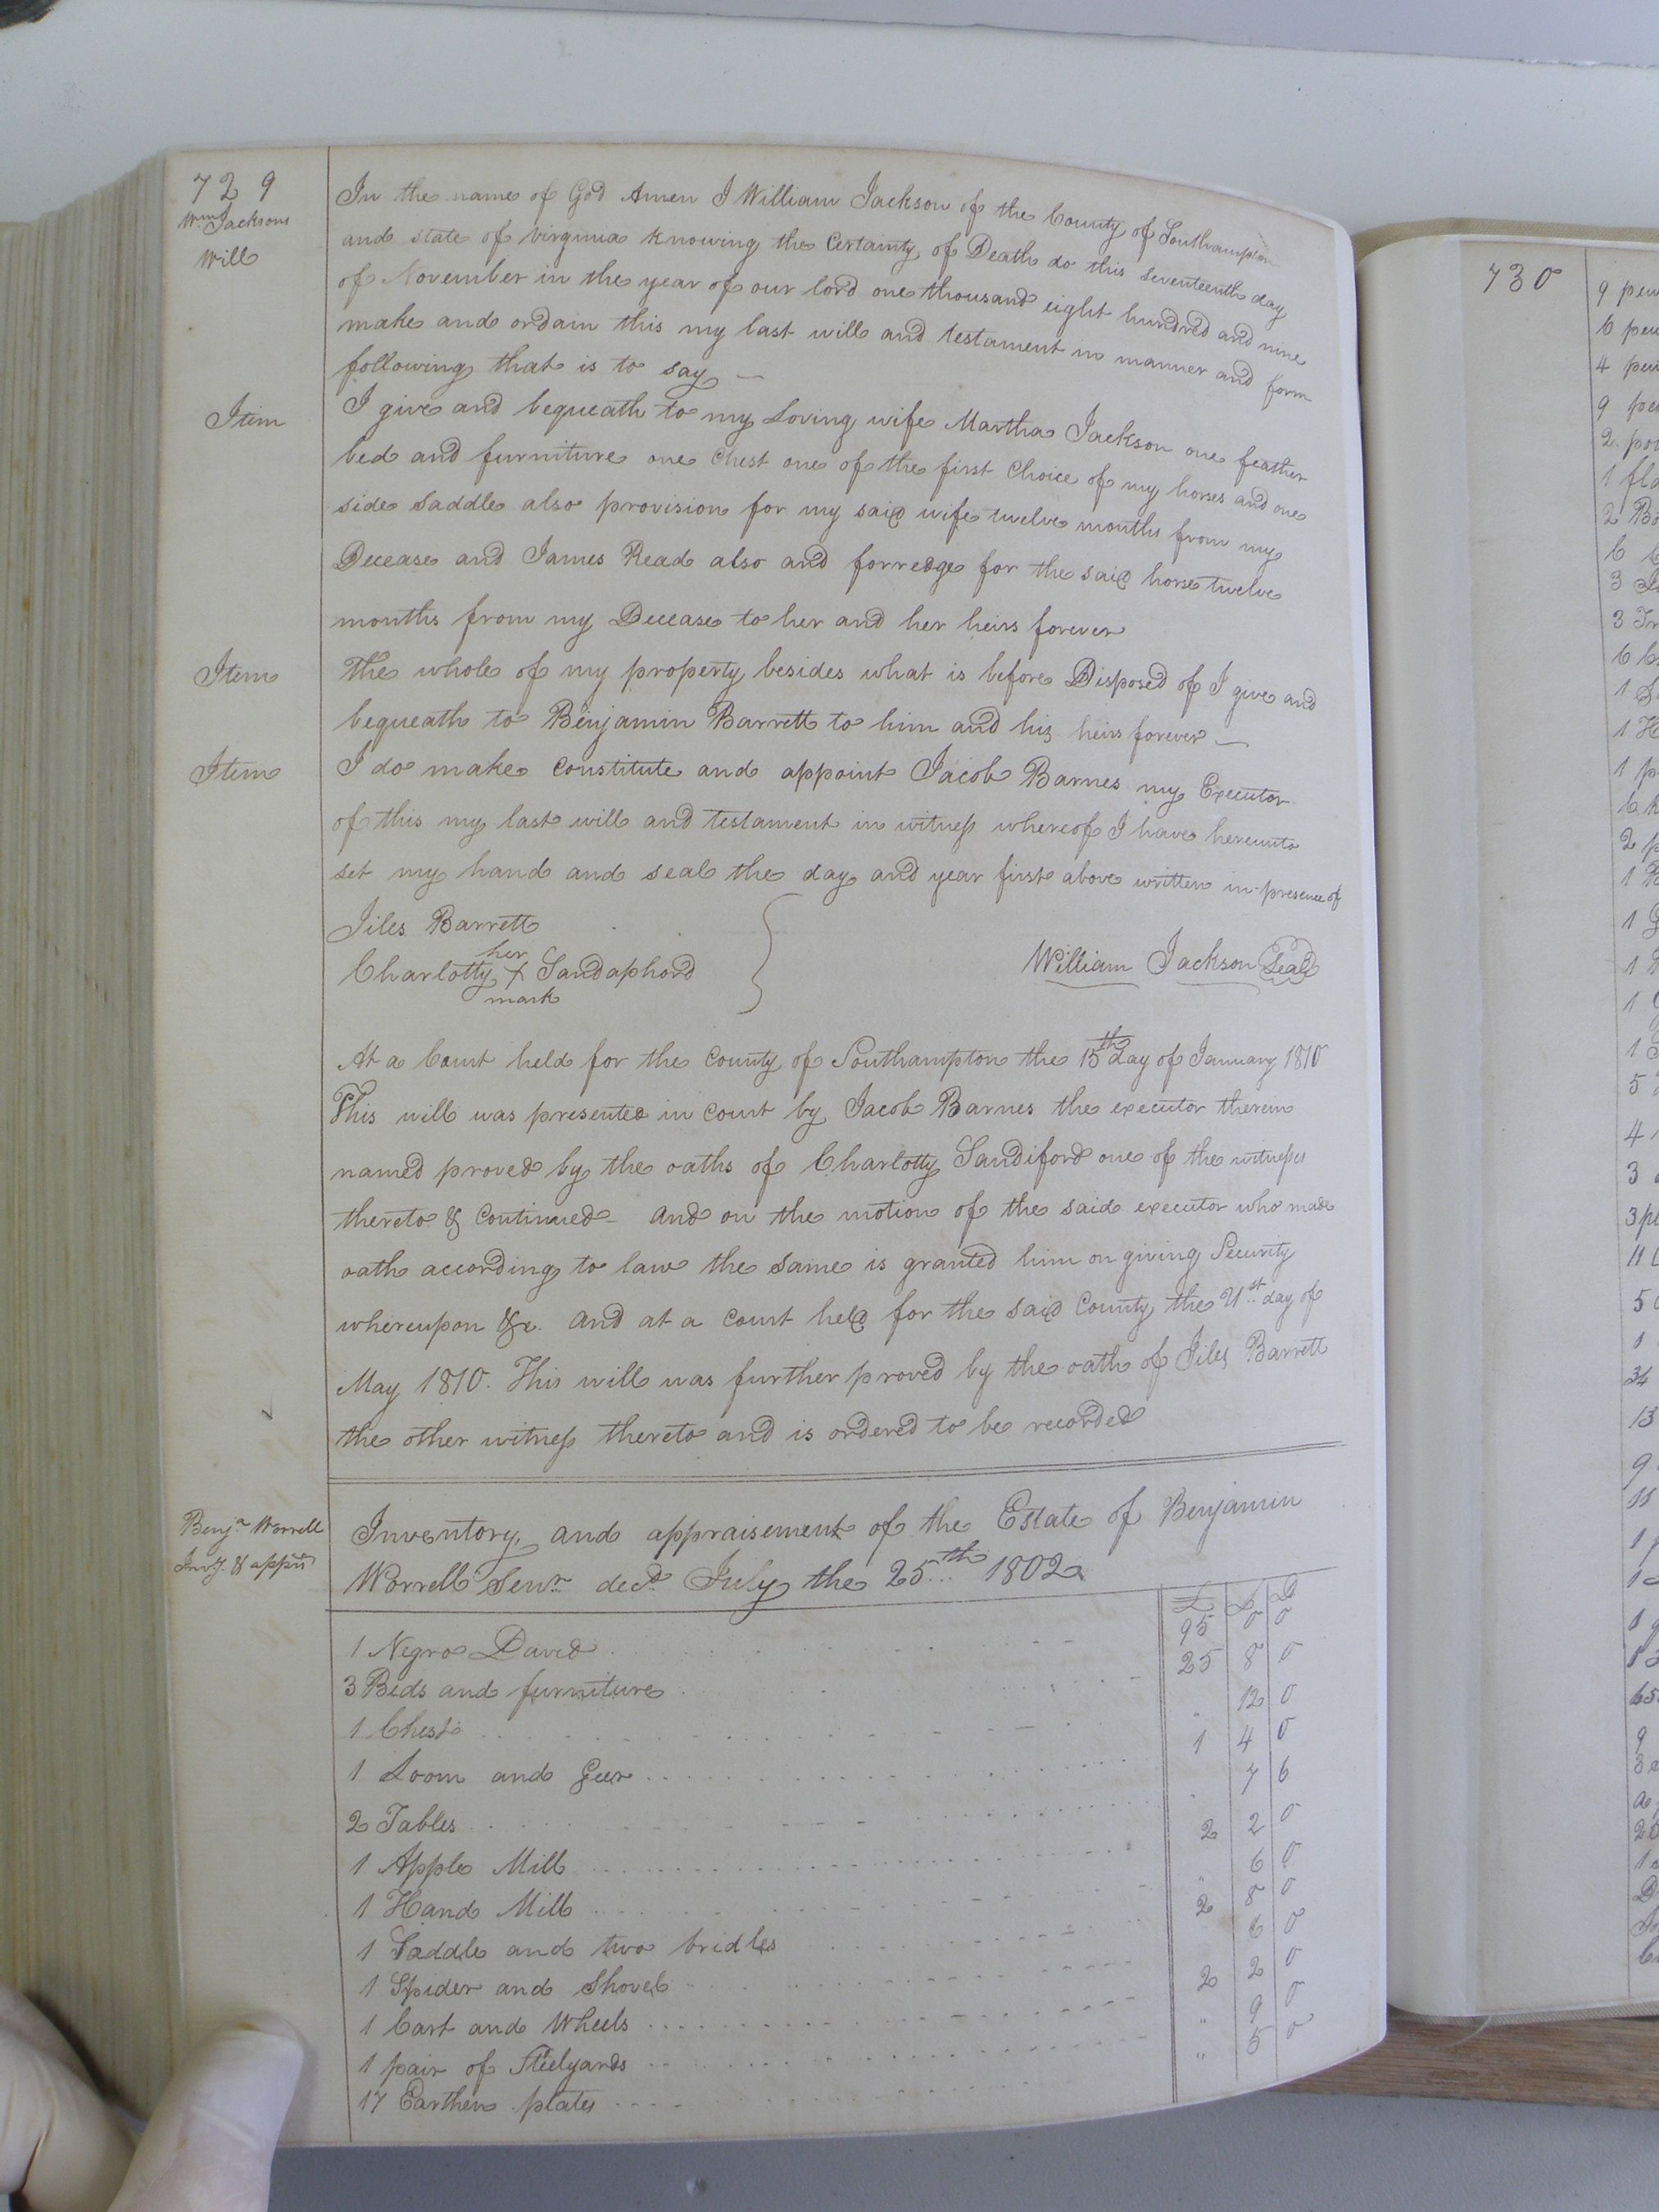 729
Wm Jacksons
Will
In the name of God Amen I William Jackson of the County of Southampton
and state of Virginia knowing the Certainty of Death do this seventeenth day
of November in the year of our lord one thousand eight hundred and nine
make and ordain this my last will and testament in manner and form
following that is to say —
Item I give and bequeath to my Loving wife Martha Jackson one feather
bed and furniture one Chest one of the first Choice of my horses and one
side saddle also provision for my said wife twelve months from my
Decease and James Read also and forredge for the said horse twelve
months from my Decease to her and her heirs forever
Item The whole of my property besides what is before Disposed of I give and
bequeath to Benjamin Barrett to him and his heirs forever —
Item I do make Constitute and appoint Jacob Barnes my Executor
of this my last will and testament in witness whereof I have hereunto
set my hand and seal the day and year first above written in presence of
Jiles Barrett
her
Charlotty + Sandaphord William Jackson Seal
mark
At a Court held for the County of Southampton the 15th day of January 1810
This will was presented in court by Jacob Barnes the executor therein
named proved by the oaths of Charlotty Sandiford one of the witnesses
thereto & Continued - And on the motion of the said executor who made
oath according to law the same is granted him on giving Security
whereupon &c. And at a Court held for the said County the 21st day of
May 1810. This will was further proved by the oath of Jiles Barrett
the other witness thereto and is ordered to be recorded
Benja Worrell
Invy. & appmt
Inventory and appraisement of the Estate of Benjamin
Worrell Senr. decd. July the 25th 1802
£ S D
1 Negro David 95 0 0
3 Beds and furniture 25 8 0
1 Chest " 12 0
1 Loom and Geer 1 4 0
2 Tables " 7 6
1 Apple Mill 2 2 0
1 Hand Mill " 6 0
1 Saddle and two bridles 2 8 0
1 Spider and Shovel 6 0
1 Cart and Wheels 2 2 0
1 pair of Stielyards " 9 0
17 Earthen plates " 5 0
730
9
6
4
9
2
1
2
6
3
3
6
1
1
1
6
2
1
1
1
1
1
5
4
3
3
11
5
1
34
13
9